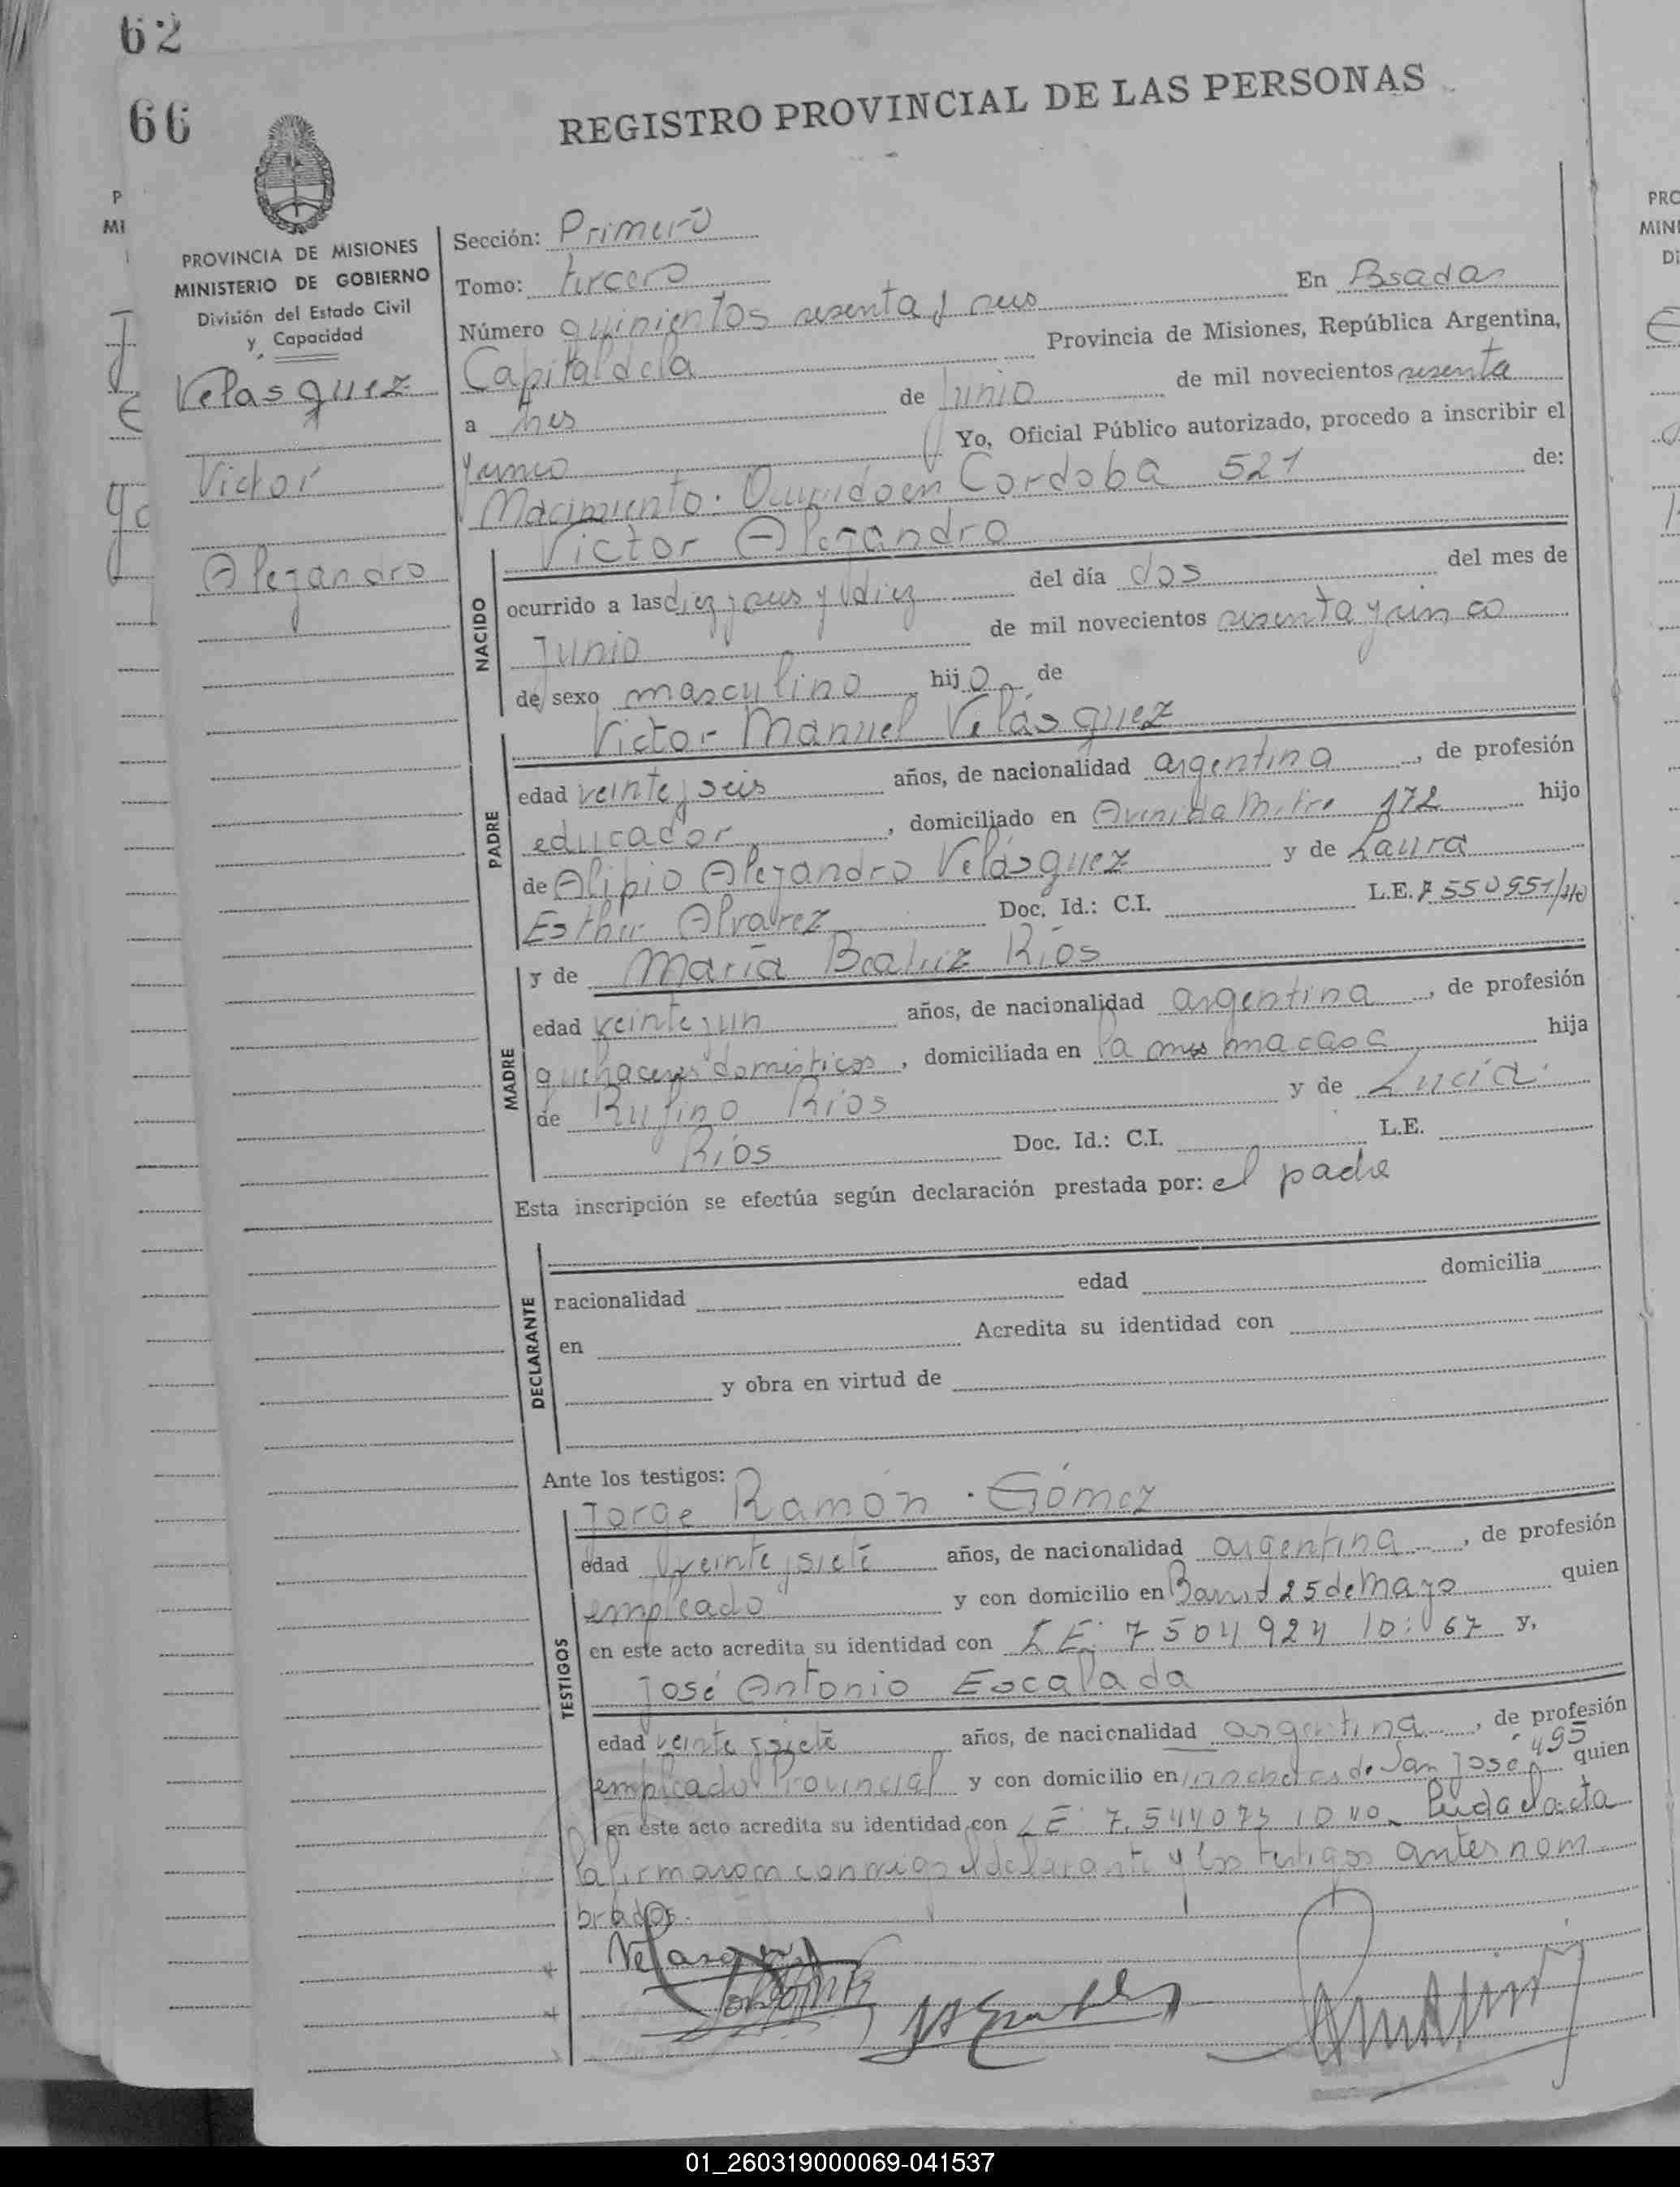 62
66
REGISTRO PROVINCIAL DE LAS PERSONAS
PROVINCIA DE MISIONES
MINISTERIO DE GOBIERNO
División del Estado Civil
y Capacidad
Velasquez
Victor
Alejandro
Sección: Primero
Tomo: tercero
Número quinientos sesenta y seis En Psadas
Capital de la Provincia de Misiones, República Argentina,
a tres de Junio de mil novecientos sesenta
y cinco Yo, Oficial Público autorizado, procedo a inscribir el
Nacimiento. Ocurrido en Cordoba 521 de:
Victor Alejandro
NACIDO
ocurrido a las diez y seis y diez del día dos del mes de
Junio de mil novecientos sesenta y cinco
de sexo masculino hijo de
PADRE
Victor Manuel Velásquez
edad veinte y seis años, de nacionalidad argentina, de profesión
educador, domiciliado en Avenida Mitre 172 hijo
de Alipio Alejandro Velásquez y de Laura
Esther Alvarez Doc. Id.: C.I. L.E. 7550551/40
MADRE
y de María Beatriz Ríos
edad veinte y un años, de nacionalidad argentina, de profesión
quehaceres domésticos, domiciliada en la misma casa hija
de Rufino Ríos y de Lucía
Ríos Doc. Id.: C.I. L.E.
Esta inscripción se efectúa según declaración prestada por: el padre
DECLARANTE
nacionalidad edad domicilia
en Acredita su identidad con
y obra en virtud de
Ante los testigos:
TESTIGOS
Jorge Ramón Gómez
edad veinte y siete años, de nacionalidad argentina, de profesión
empleado y con domicilio en 25 de Mayo quien
en este acto acredita su identidad con L E. 7504924 D: 67 y,
José Antonio Escalada
edad veinte y siete años, de nacionalidad argentina, de profesión
empleado Provincial y con domicilio en de San José 495 quien
en este acto acredita su identidad con L E. 7.544073 D 40 Leida el acta
la firmaron conmigo el declarante y los testigos antes nom
brados.
Velasquez
01_260319000069-041537